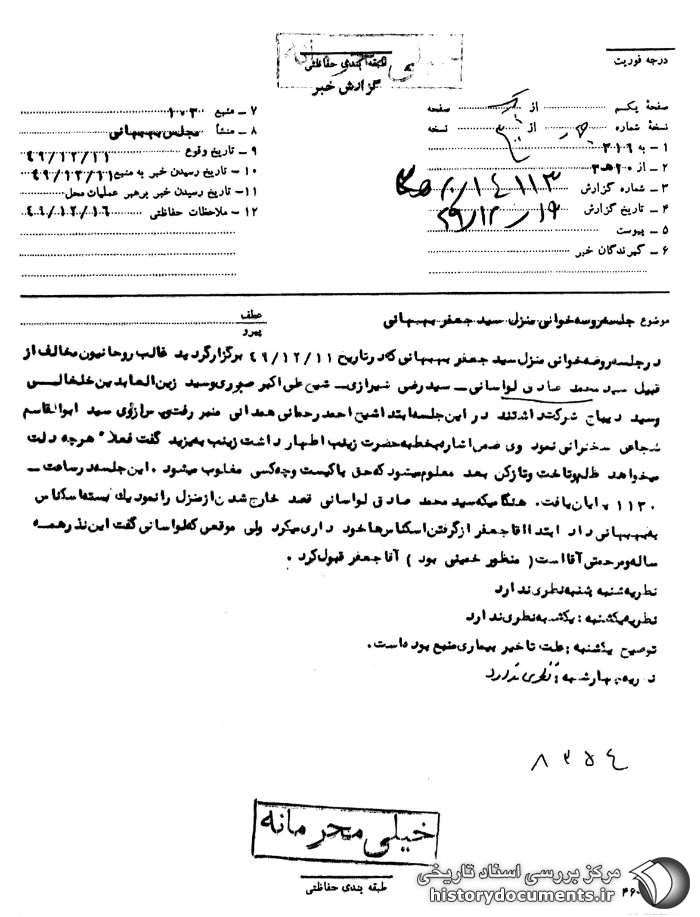 درجه فوریت
خیلی محرمانه
طبقه بندی حفاظتی
گزارش خبر
صفحه یکم از صفحه
نسخه شماره از نسخه
۱ – به ۳۱۶
۲ – از ۲۰ هـ ۳
۳ – شماره گزارش ۱۴۱۱۳
۴ – تاریخ گزارش ۴۹/۱۲/۱۶
۵ – پیوست
۶ – گیرندگان خبر
۷ – منبع ۱۰۰۳
۸ – منشأ مجلس بهبهانی
۹ – تاریخ وقوع ۴۹/۱۲/۱۱
۱۰ – تاریخ رسیدن خبر به منبع ۴۹/۱۲/۱۱
۱۱ – تاریخ رسیدن خبر برهبر عملیات محل
۱۲ – ملاحظات حفاظتی ۴۹/۱۲/۱۶
موضوع جلسه روضه خوانی منزل سید جعفر بهبهانی
عطف
پیرو
در جلسه روضه خوانی منزل سید جعفر بهبهانی که در تاریخ ۴۹/۱۲/۱۱ برگزار گردید غالب روحانیون مخالف از
قبیل سید محمد صادق لواسانی – سید رضی شیرازی – شیخ علی اکبر صبوری و سید زین العابدین خلخالی
و سید دیباج شرکت داشتند در این جلسه ابتدا شیخ احمد رحمانی همدانی منبر رفت و پس از وی سید ابوالقاسم
شجاعی سخنرانی نمود وی ضمن اشاره بخطبه حضرت زینب اظهار داشت زینب به یزید گفت فعلاً هرچه دلت
میخواهد ظلم و تاخت و تاز کن بعد معلوم میشود که حق با کیست و چه کسی مغلوب میشود . این جلسه در ساعت –
۱۱۳۰ پایان یافت . هنگامیکه سید محمد صادق لواسانی قصد خارج شدن از منزل را نمود یك بسته اسکناس
به بهبهانی داد ابتدا آقا جعفر از گرفتن اسکناس ها خود داری میکرد ولی موقعی که لواسانی گفت این نذر همه
ساله و مرحمتی آقا است ( منظور خمینی بود ) آقا جعفر قبول کرد .
نظریه شنبه شنبه نظری ندارد
نظریه یکشنبه : یکشنبه نظری ندارد
توضیح یکشنبه : علت تاخیر بیماری منبع بوده است .
نظریه چهارشنبه : نظری ندارد
۸۳۵۴
خیلی محرمانه
طبقه بندی حفاظتی
۴۶-
مرکز بررسی اسناد تاریخی
historydocuments.ir